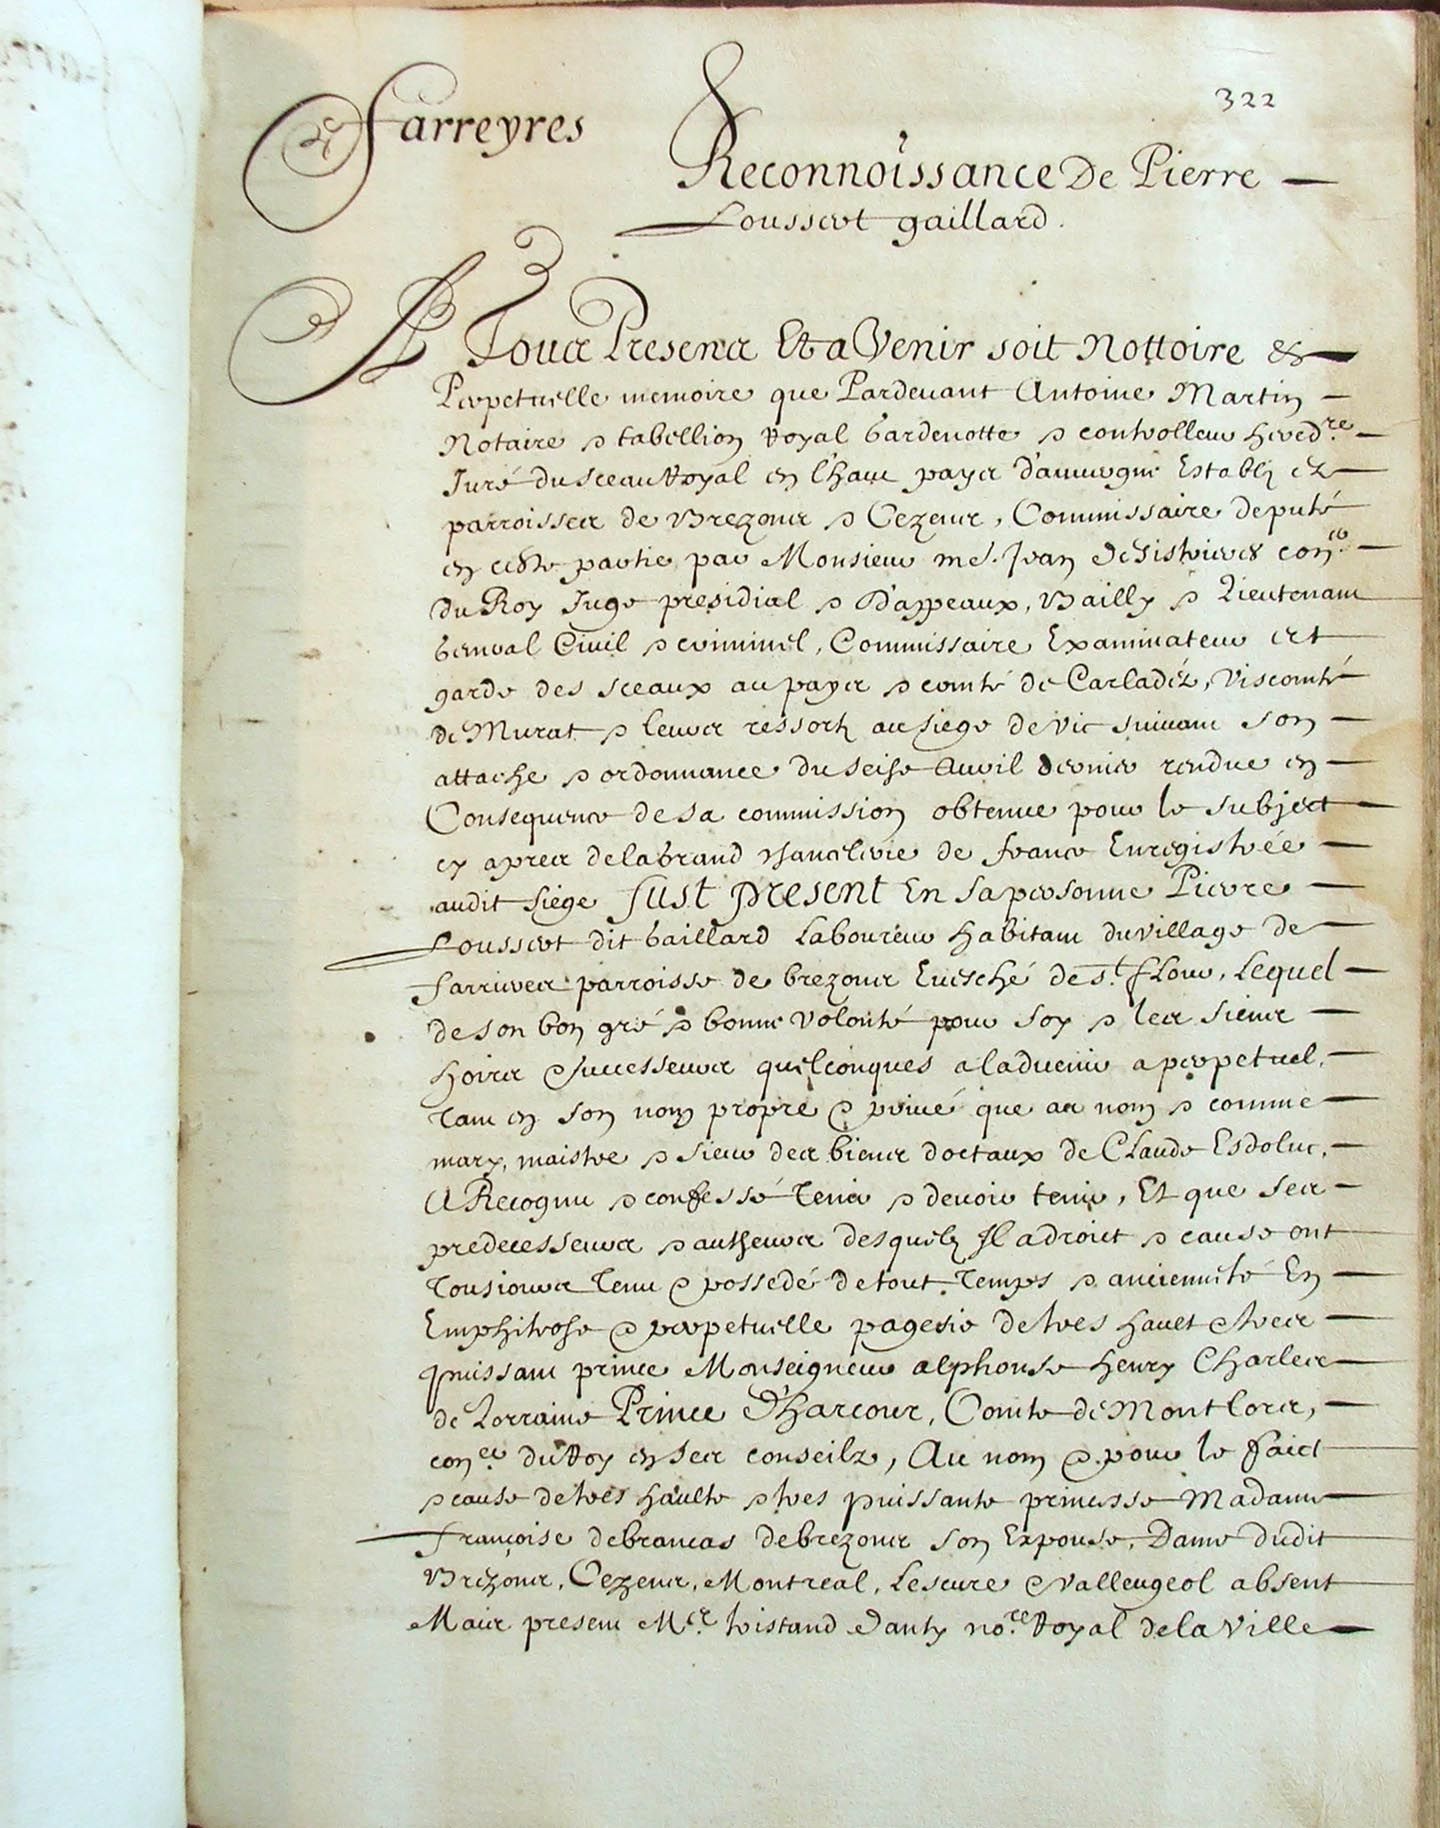 322
Farreyres
Reconnoissance De Pierre
Loussert gaillard.
A Tous Presens Et a Venir soit Nottoire &
Perpetuelle memoire que Pardevant Antoine Martin
Notaire & tabellion Royal Gardenotte & controlleur hered.re
Juré du sceau Royal en l'haut payes d'auvergne Establi es
parroisses de Brezons & Cezens, Commissaire deputé
en ceste partie par Monsieur me. Jean Desistrieres con.er
du Roy Juge presidial & D'appeaux, Bailly & Lieutenant
General Civil & criminel, Commissaire Examinateur et
garde des sceaux au payes & comté de Carladéz, Viscomté
de Murat & leurs ressortz au siege de Vic suivant son
attache & ordonnance du seise Auvril dernier rendue en
Consequence de sa commission obtenue pour le subject
cy apres de la Grand Chancilerie de france Enregistrée
audit siege fust present En sa personne Pierre
Loussert dit Gaillard Laboureur habitant du village de
farrieres parroisse de brezons Evesché de st. flour, Lequel
de son bon gré & bonne volonté pour soy & les siens
hoirs & successeurs quelconques a ladvenir a perpetuel,
Tant en son nom propre & privé que au nom & comme
mary, maistre & sieur des biens doctaux de Claude Esdoluc,
A Recognu & confessé tenir & devoir tenir, Et que ses
predecesseurs & autheurs desquelz Il a droict & cause ont
Tousiours Tenu & possedé de tout Temps & ancienneté En
Emphiteose & perpetuelle pagesie de tres hault & tres
puissant prince Monseigneur alphonse henry Charles
de Lorraine Prince D'harcour, Comte de Montlors,
con.er du Roy en ses conseilz, Au nom & pour le faict
& cause de tres haulte & tres puissante princesse Madame
françoise de brancas de brezons son Expouse, Dame dudit
Brezons, Cezens, Montreal, Lescure & Valleugeol absent
Mais present M.e tristand Danty no.re Royal de la Ville